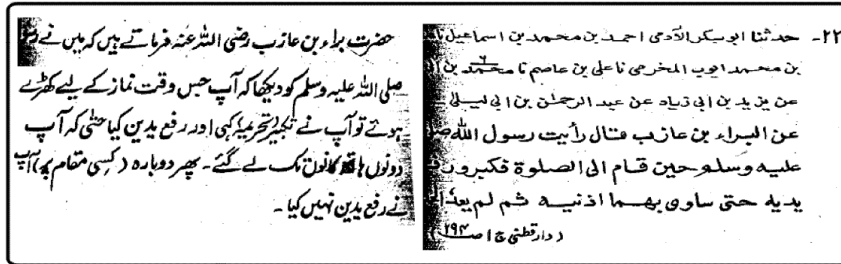 ۲۲- حدثنا ابو بکر الآدمی احمد بن محمد بن اسماعیل نا
بن محمد ایوب المخرمی نا علی بن عاصم نا محمد بن
عن یزید بن ابی زیاد عن عبد الرحمٰن بن ابی لیلیٰ
عن البراء بن عازب قال رأیت رسول الله
علیه وسلم حین قام الی الصلوة فکبر و
یدیه حتی ساوی بهما اذنیه ثم لم یعد
(دار قطنی ج ۱ ص ۲۹۴)
حضرت براء بن عازب رضی اللہ عنہ فرماتے ہیں کہ میں نے
صلی اللہ علیہ وسلم کو دیکھا کہ آپ جس وقت نماز کے لیے کھڑے
ہوئے تو آپ نے تکبیر (تحریمہ) کہی اور رفع یدین کیا حتٰی کہ آپ
دونوں ہاتھ کانوں تک لے گئے۔ پھر دوبارہ (کسی مقام پر) آپ
نے رفع یدین نہیں کیا۔